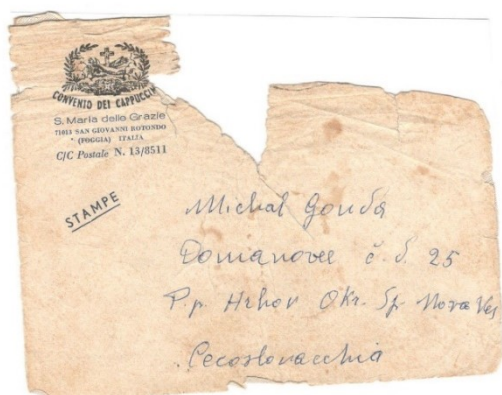 CONVENTO DEI CAPPUCCINI
S. Maria delle Grazie
71013 SAN GIOVANNI ROTONDO
(FOGGIA) ITALIA
C/C Postale N. 13/8511
STAMPE
Michal Gonda
Domanovce č. d. 25
P.p. Hrhov Okr. Sp. Nova Ves
Cecoslovacchia